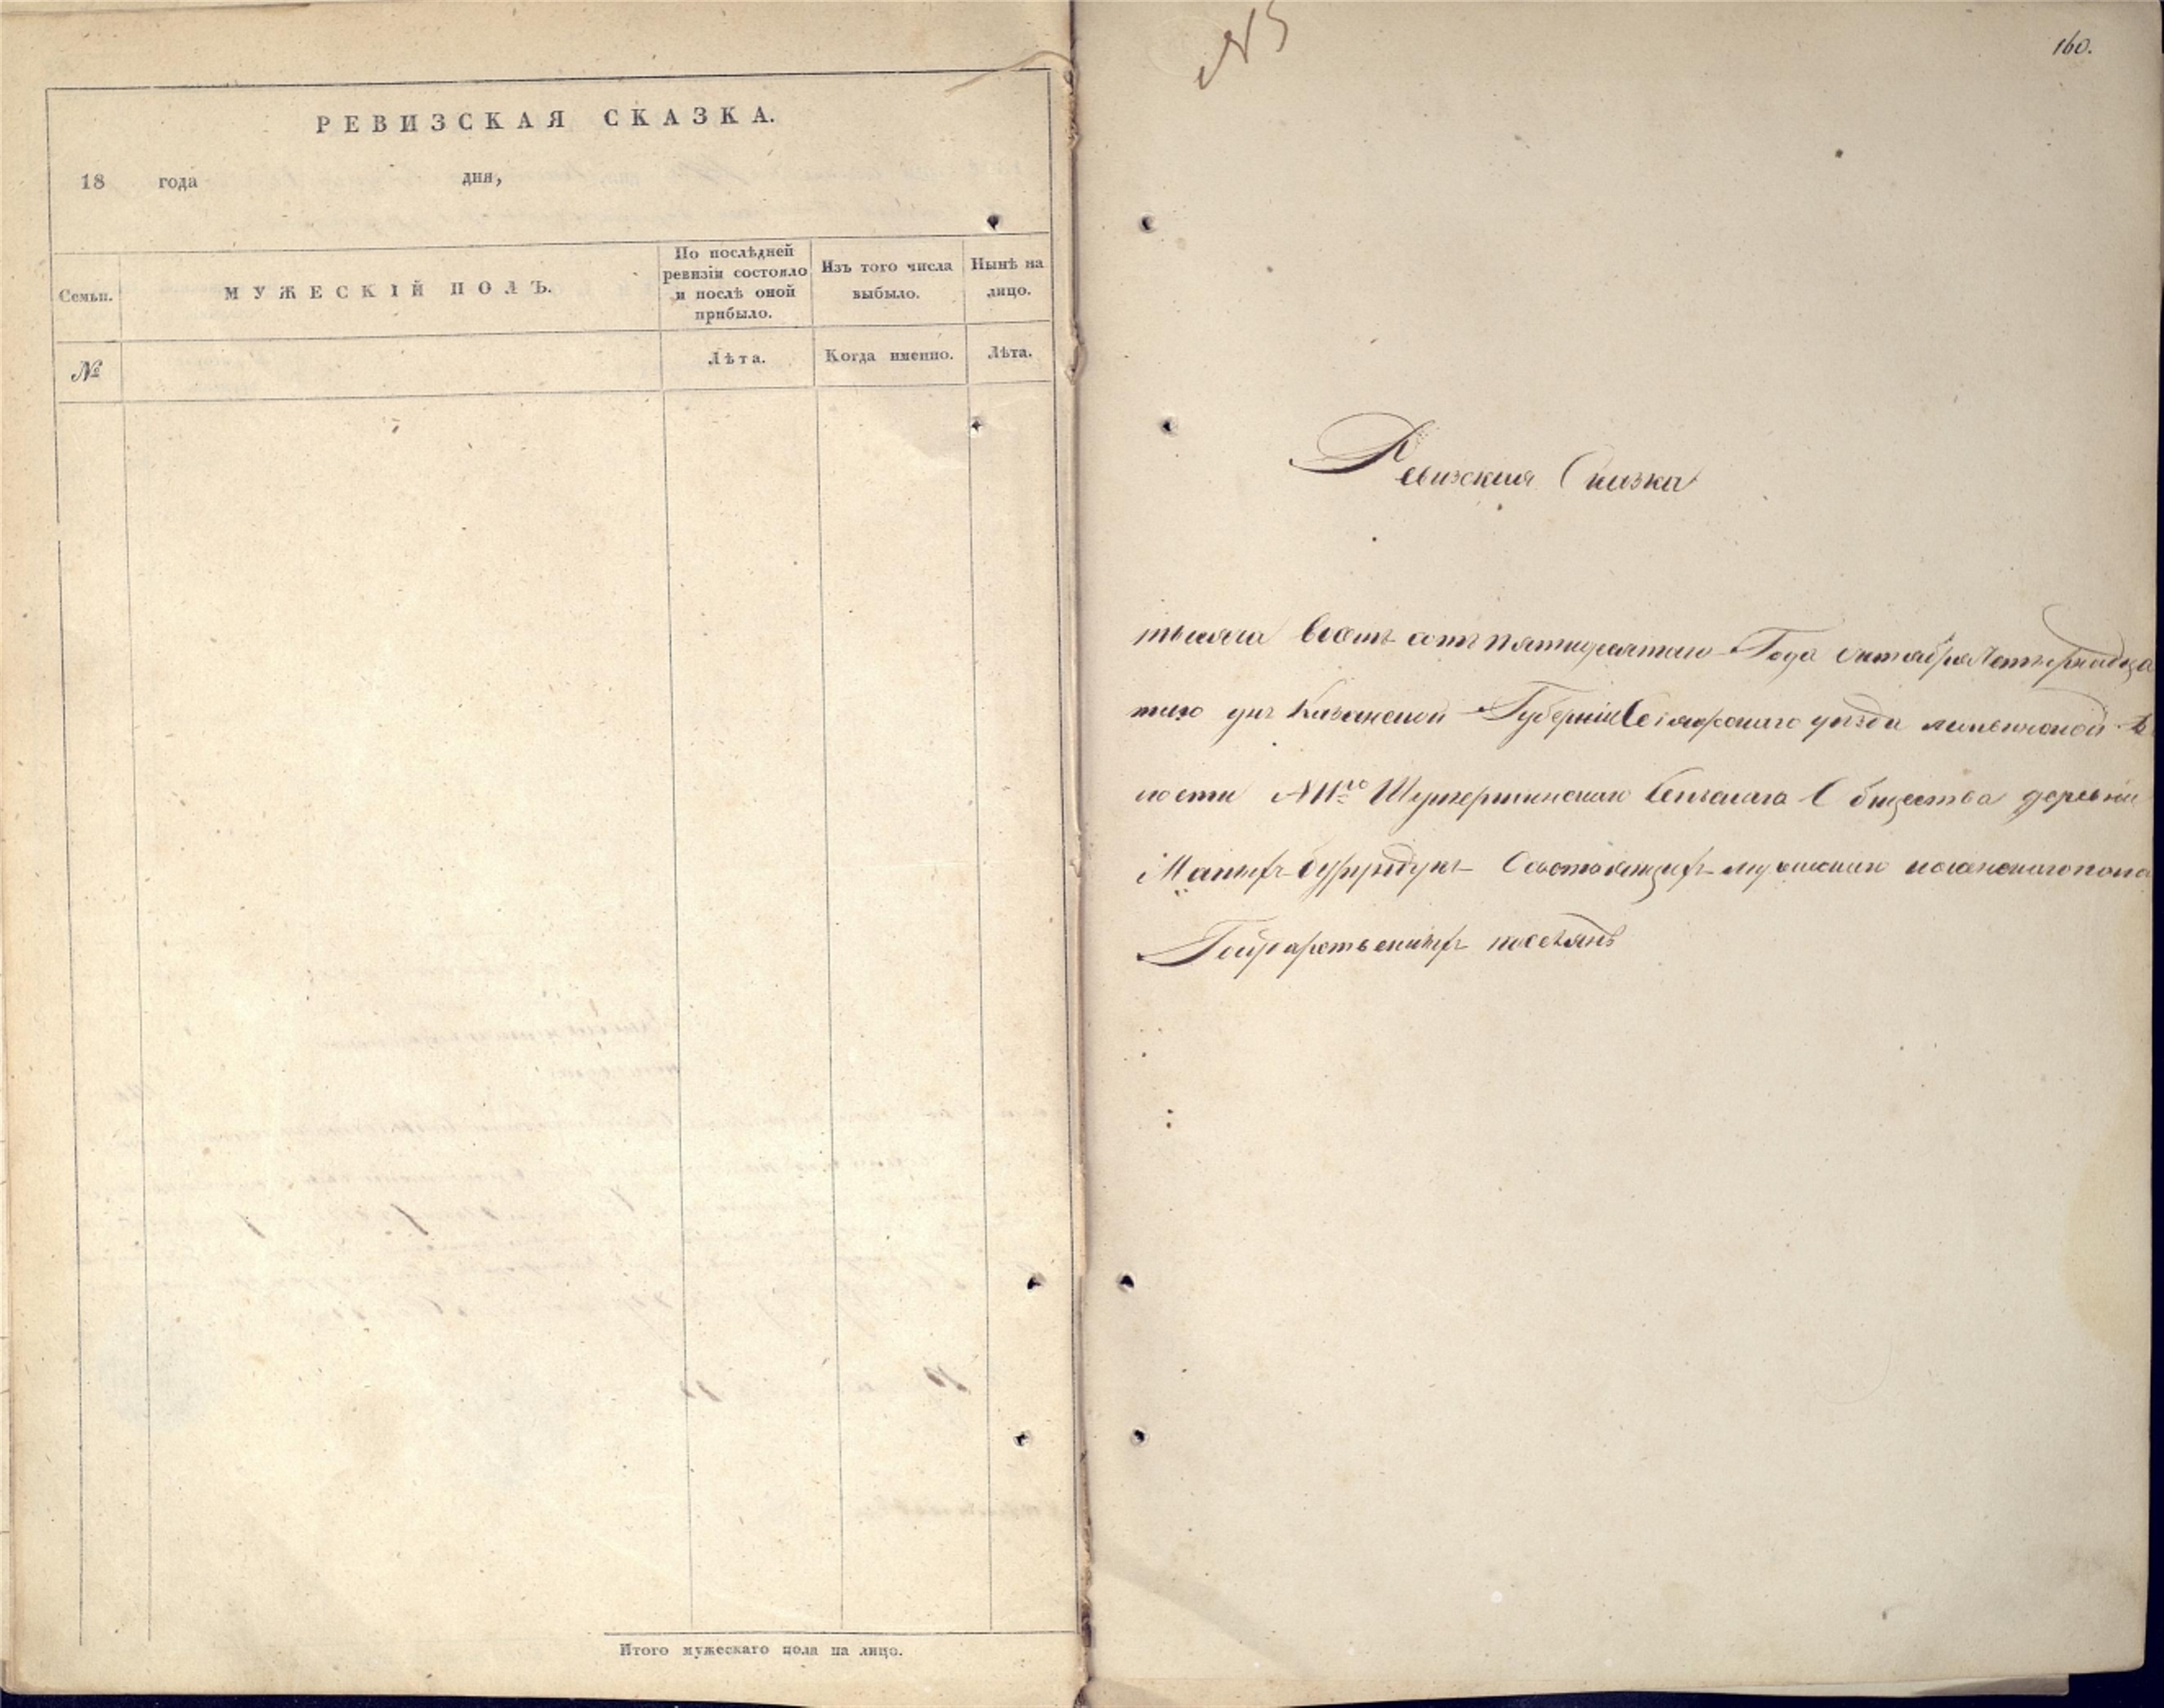 РЕВИЗСКАЯ СКАЗКА.
18 года дня,
Семьи.
МУЖЕСКІЙ ПОЛЪ.
По послѣдней ревизіи состояло и послѣ оной прибыло.
Изъ того числа выбыло.
Нынѣ на лицо.
№
Лѣта.
Когда именно.
Лѣта.
Итого мужескаго пола на лицо.
№5
160.
Ревизская Сказка
тысяча восемь сотъ пятидесятаго Года октября Четырнадца
таго дня Казанской Губерніи уѣзда
лости Сельскаго Общества деревни
Состоящихъ мужескаго женскаго пола
Государственныхъ поселянъ